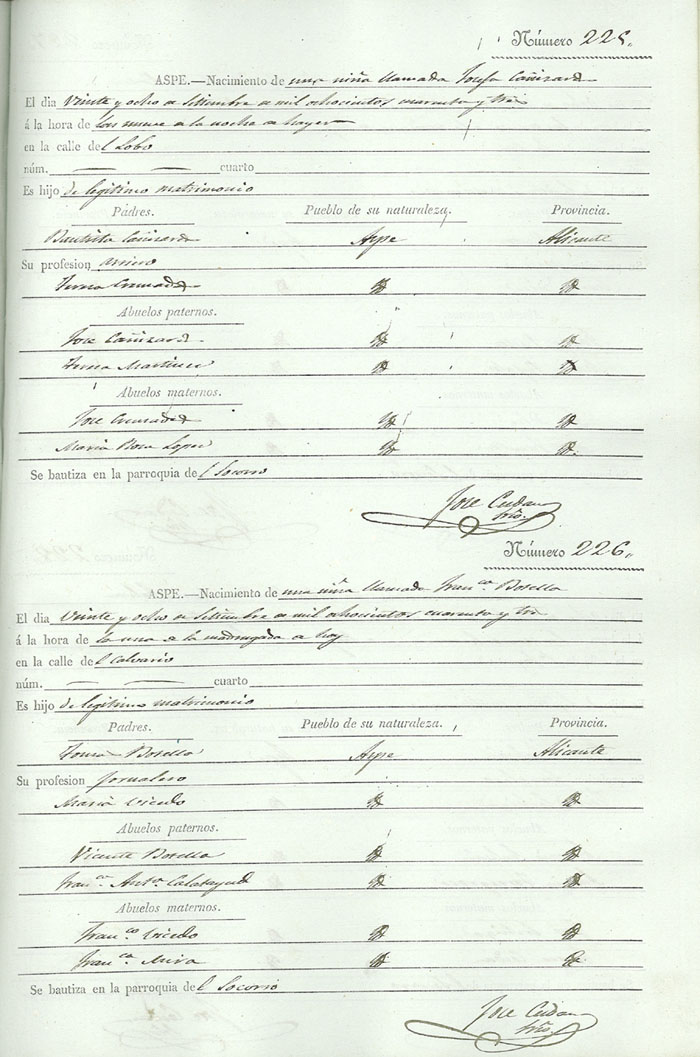 Número 225.
ASPE.—Nacimiento de una niña llamada Josefa Cañizares
El dia Veinte y ocho de Setiembre de mil ochocientos cuarenta y tres
á la hora de las nueve de la noche de hayer
en la calle del Lobo
núm. — — cuarto
Es hijo de legitimo matrimonio
Padres. Pueblo de su naturaleza. Provincia.
Bautista Cañizares Aspe Alicante
Su profesion arriero
Teresa Cremades Yd. Yd.
Abuelos paternos.
Jose Cañizares Yd. Yd.
Teresa Martinez Yd. Yd.
Abuelos maternos.
Jose Cremades Yd. Yd.
Maria Rosa Lopez Yd. Yd.
Se bautiza en la parroquia del Socorro
Jose
Srio.
Número 226.
ASPE.—Nacimiento de una niña llamada Fran.ca Botella
El dia Veinte y ocho de Setiembre de mil ochocientos cuarenta y tres
á la hora de la una de la madrugada de hoy
en la calle del Calvario
núm. — — cuarto
Es hijo de legitimo matrimonio
Padres. Pueblo de su naturaleza. Provincia.
Botella Aspe Alicante
Su profesion Jornalero
Maria Vicedo Yd. Yd.
Abuelos paternos.
Vicente Botella Yd. Yd.
Fran.ca Ant.a Calatayud Yd. Yd.
Abuelos maternos.
Fran.co Vicedo Yd. Yd.
Fran.ca Mira Yd. Yd.
Se bautiza en la parroquia del Socorro
Jose
Srio.